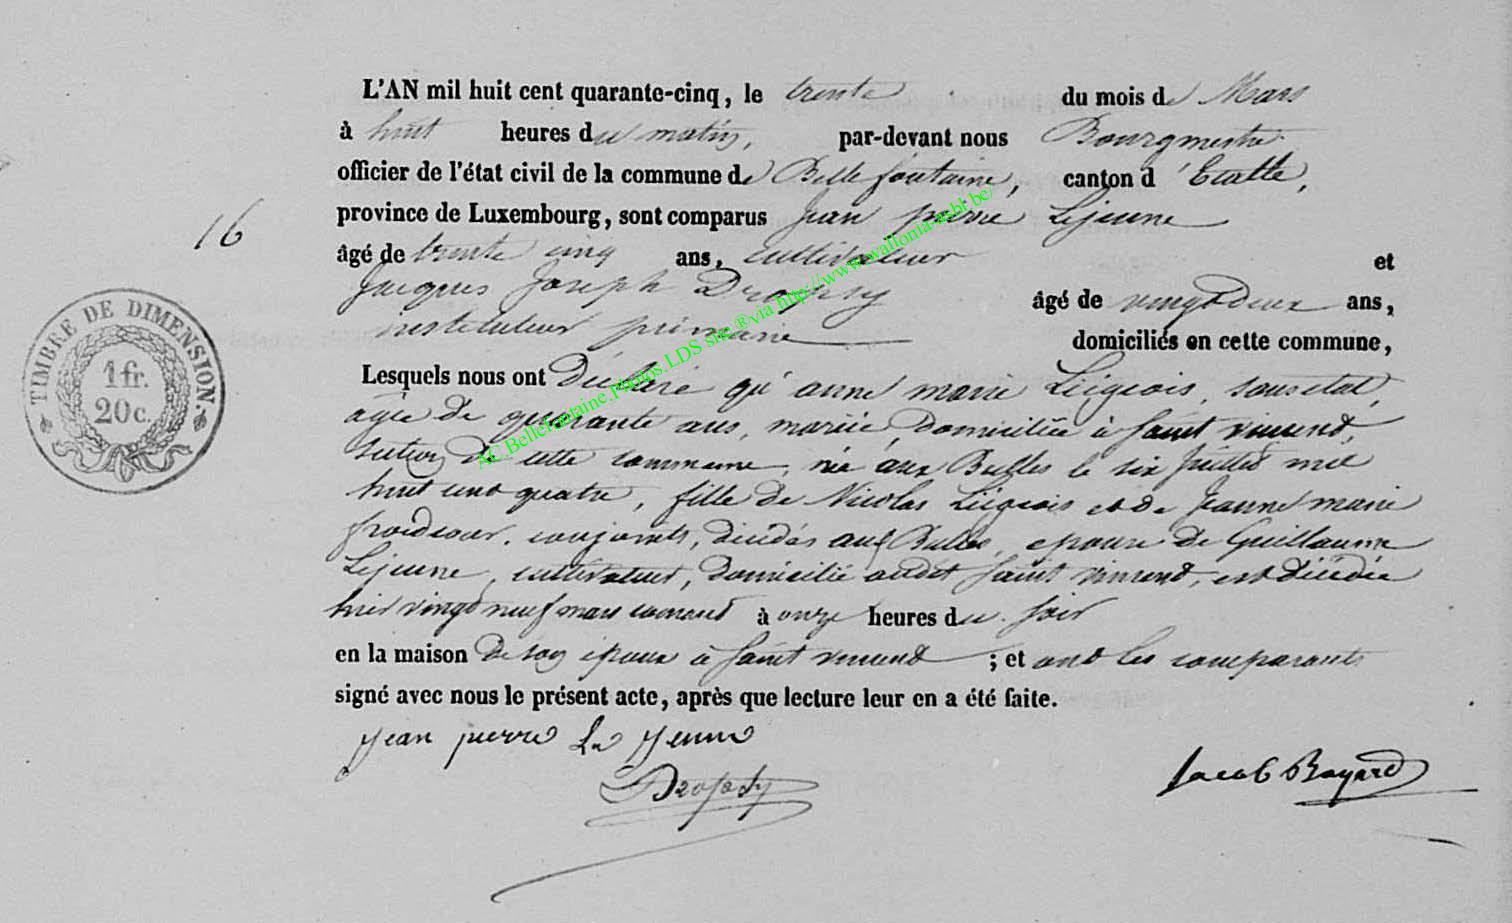 L'AN mil huit cent quarante-cinq, le trente du mois de Mars
à huit heures du matin, par-devant nous Bourgmestre
officier de l'état civil de la commune de Bellefontaine, canton d'Etalle,
16
province de Luxembourg, sont comparus Jean pierre Lejeune
âgé de trente cinq ans, cultivateur et
Jacques Joseph âgé de vingt deux ans,
instituteur primaire domiciliés en cette commune,
Lesquels nous ont Déclaré qu'anne marie Liégeois, sans état,
âgée de quarante ans, mariée, Domiciliée à Saint vincent,
section de cette commune, née aux Bulles le six Juillet mil
huit cent quatre, fille de Nicolas Liégeois et de Jeanne marie
froidcour, conjoints, décédés aux Bulles, epouse de Guillaume
Lejeune, cultivateur, domicilié audit Saint vincent, est Décédée
hier vingt neuf mars courant à onze heures du soir
en la maison de son époux à Saint vincent ; et ont les comparants
signé avec nous le présent acte, après que lecture leur en a été faite.
Jean pierre Le Jeune
Jacob Bayard
TIMBRE DE DIMENSION
1 fr.
20 c.
AC.Bellefontaine.Photos.LDS site ®via http://www.wallonia-asbl.be/